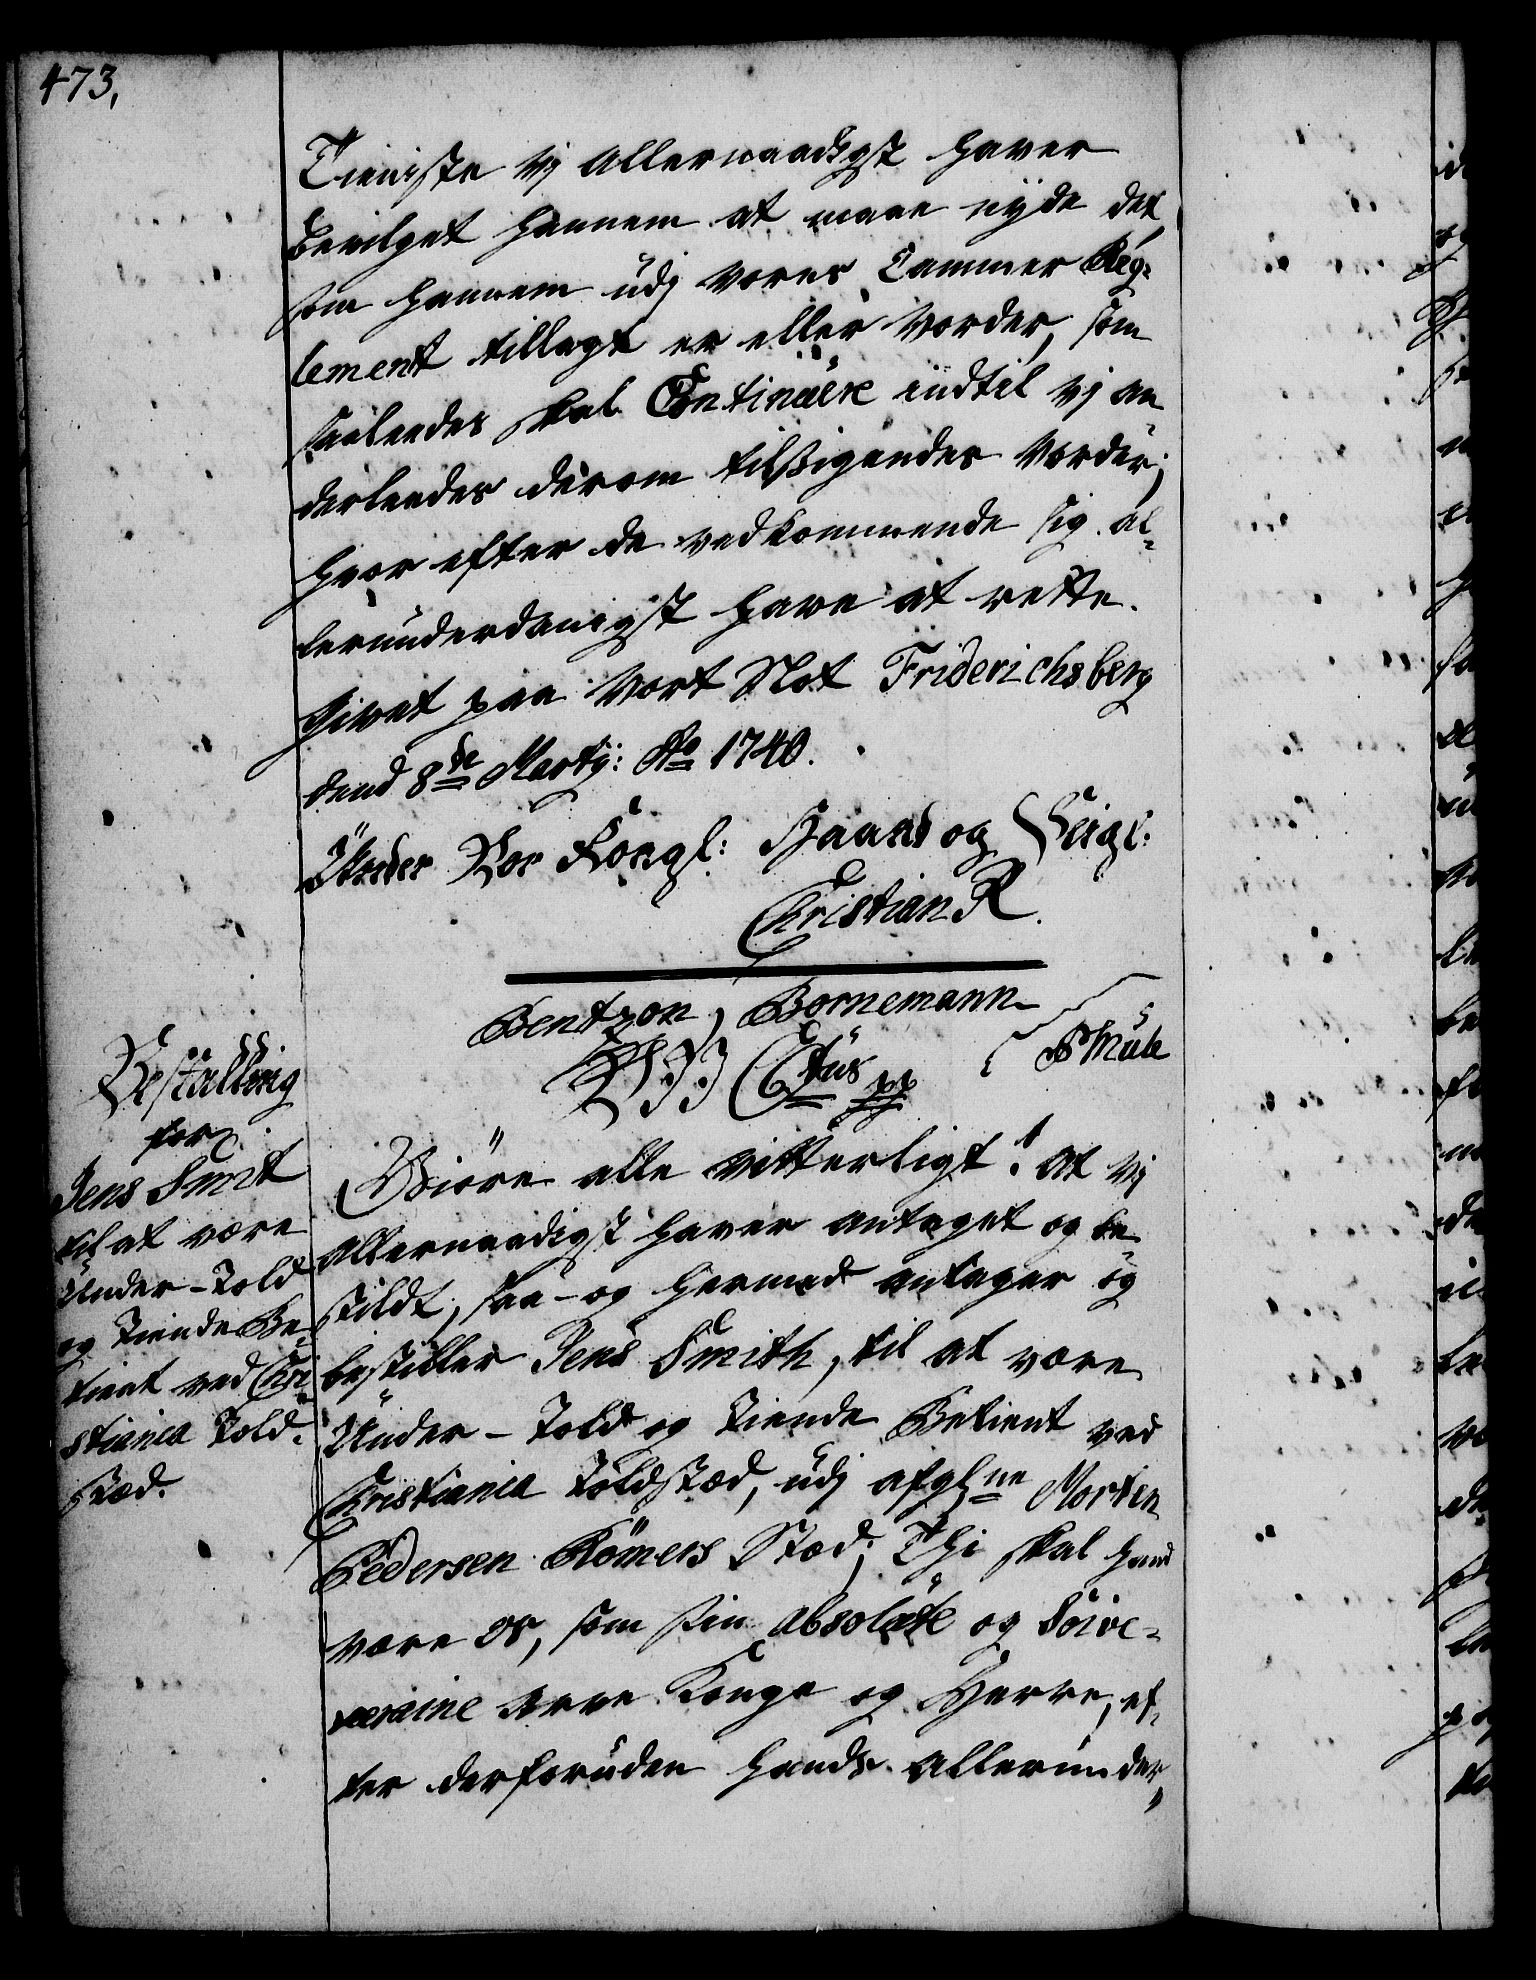 473,
Tieniste vj allernaadigst haver
bevilget hannem at maae nÿde det,
som hannem udj vores Cammer Reg-
lement tillagt er eller vorder, som
saaledes skal Continuere indtil vj an-
derledes derom tilsigendes vorder;
hvor efter de vedkommende sig al-
lerunderdanigst have at rette.
Givet paa Vort Slot Friderichsberg
dend 8de Martij: Ao 1740.
Under Vor Kongl: Haand og Seigl:
Christian R.
Bentzon, Bornemann
Bestalling
for
Jens Smit
til at være
Under-Told
og Tiende Be-
tient ved Chri-
stiania Told-
stæd.
Ctus pp
Giøre alle vitterligt! at vj
allernaadigst haver antaget og be-
stildt, saa- og hermed antager og
bestiller Jens Smith, til at være
Under-Told og Tiende Betient ved
Christiania Toldstæd, udj afgl:ne Morten
Pedersen Römers Stæd; Thi skal hand
være os, som sin absolute og Souve-
veraine Arve Konge og Herre, ef-
ter derforuden hands allerunder-